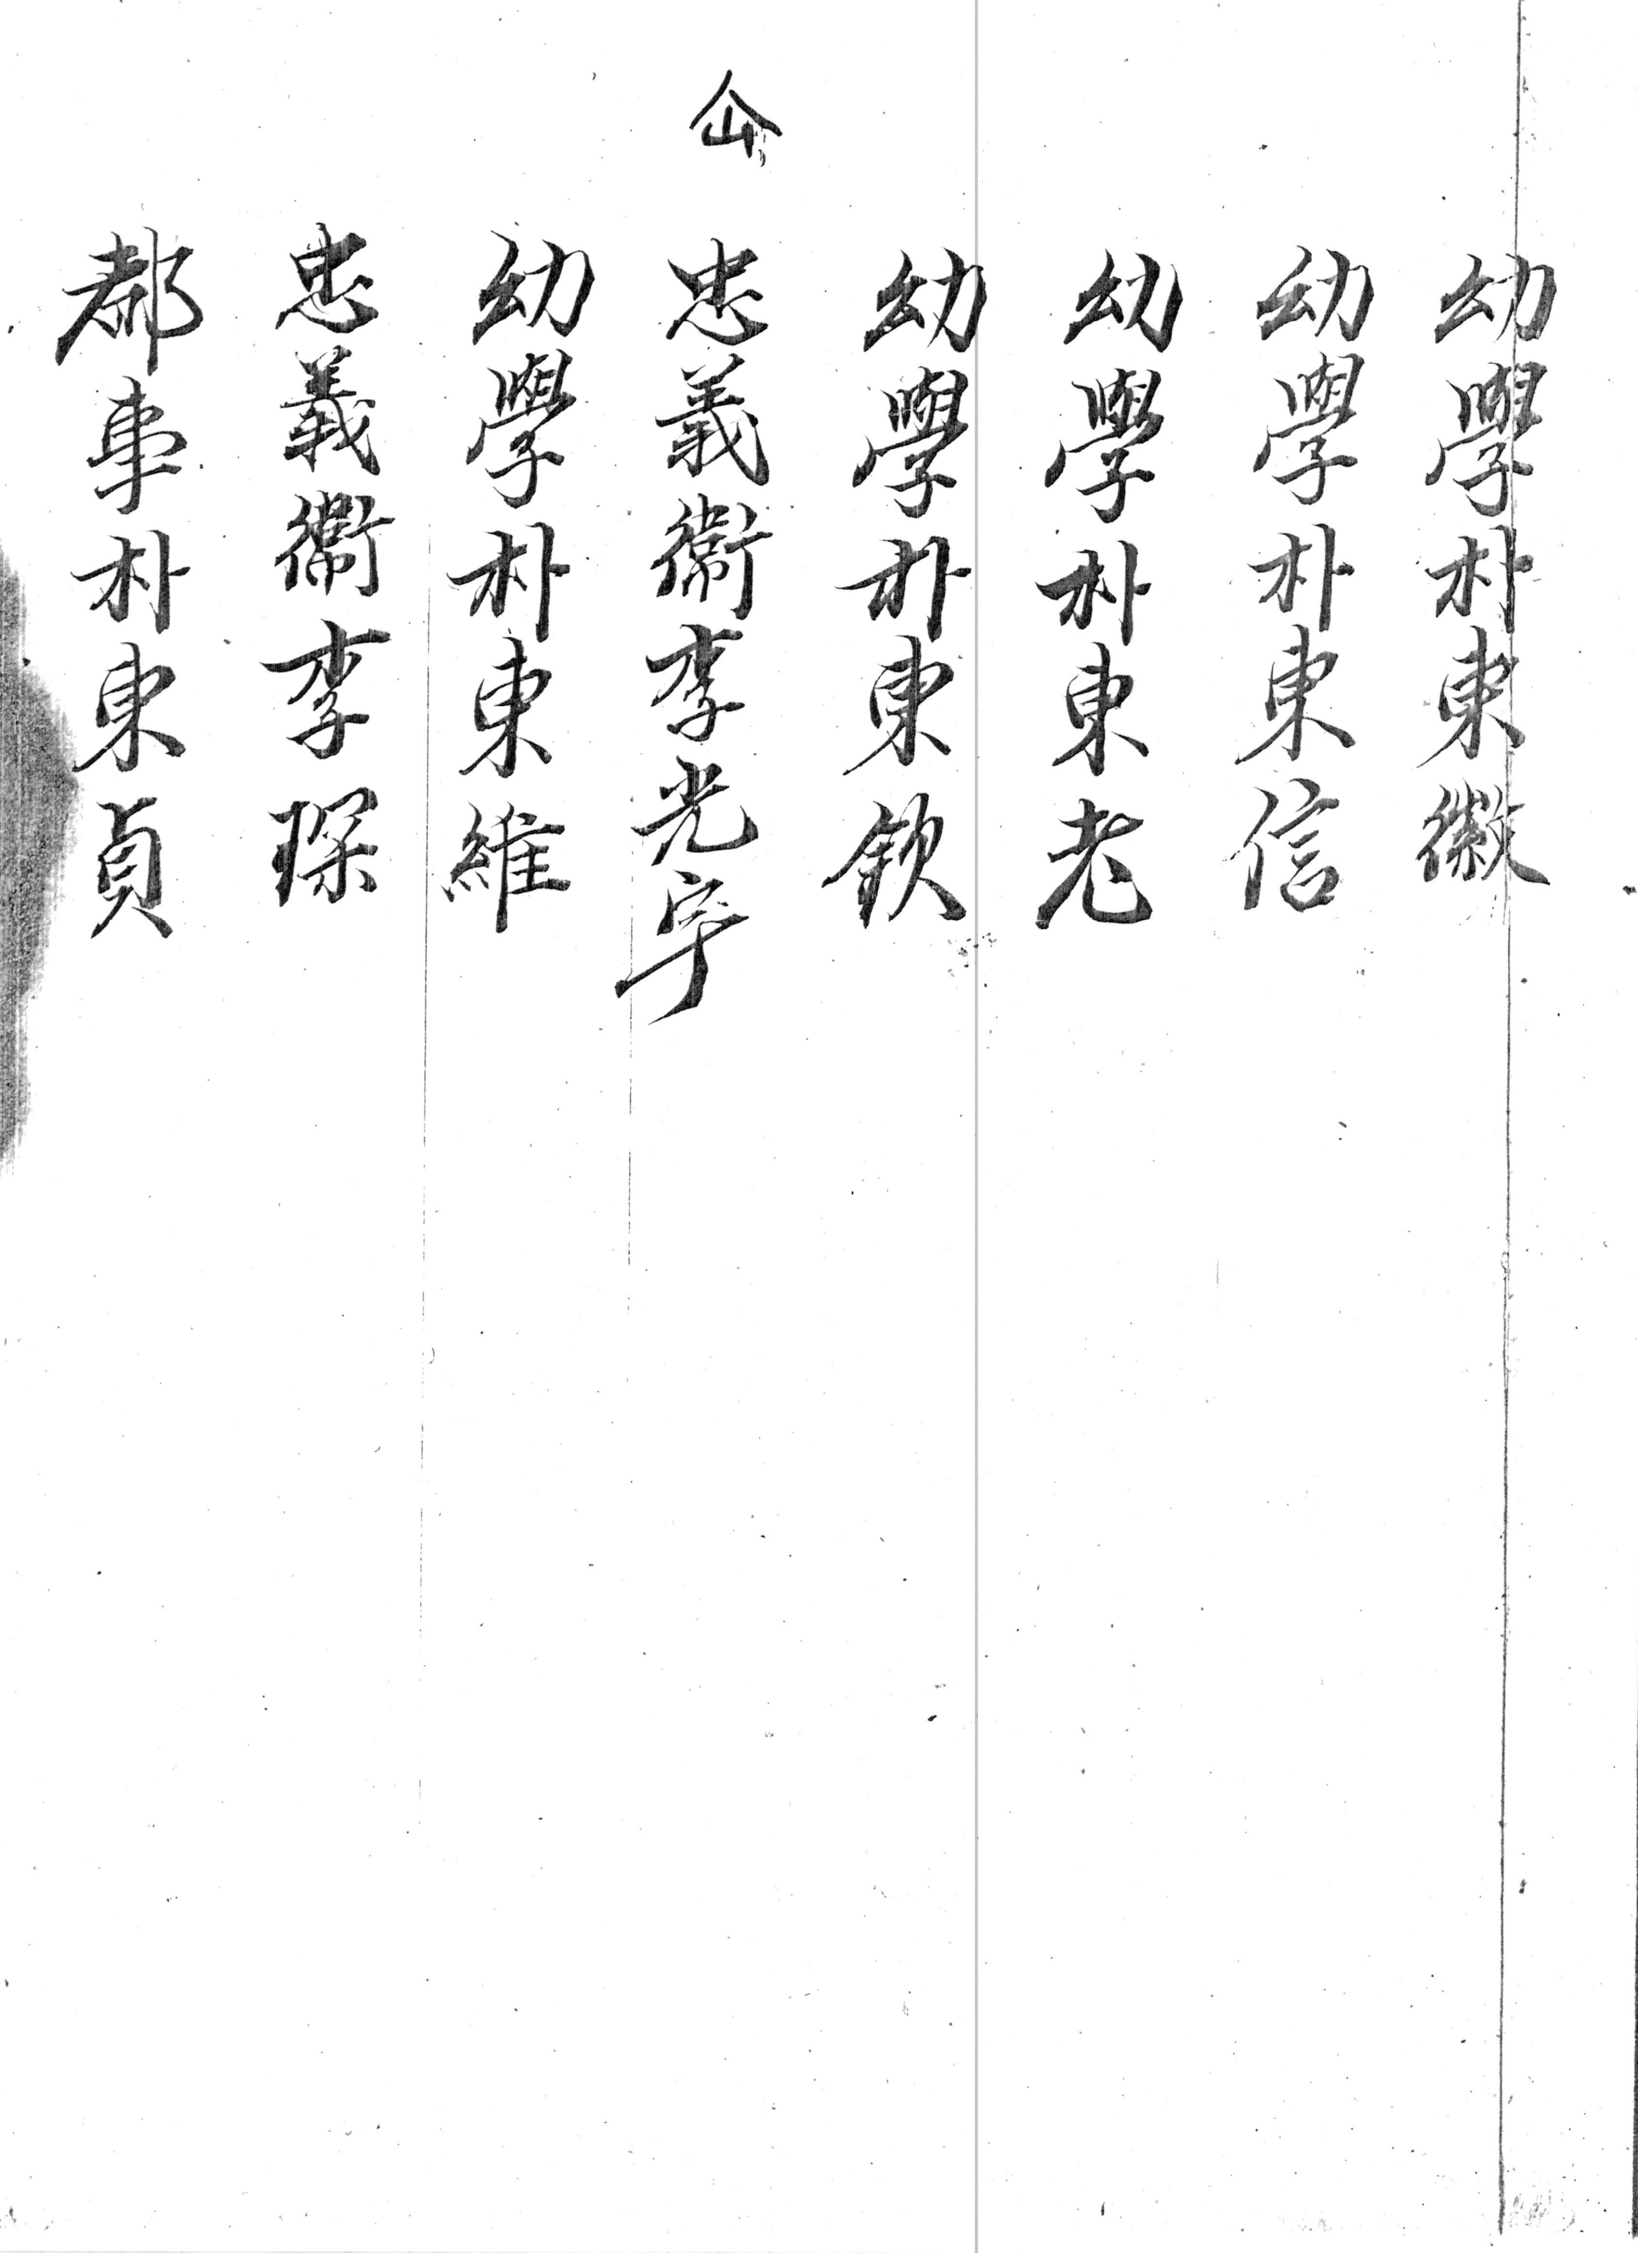 幼學朴東徽
幼學朴東信
幼學朴東老
幼學朴東欽
忠義衛李光宇
幼學朴東維
忠義衛李琛
都事朴東貞